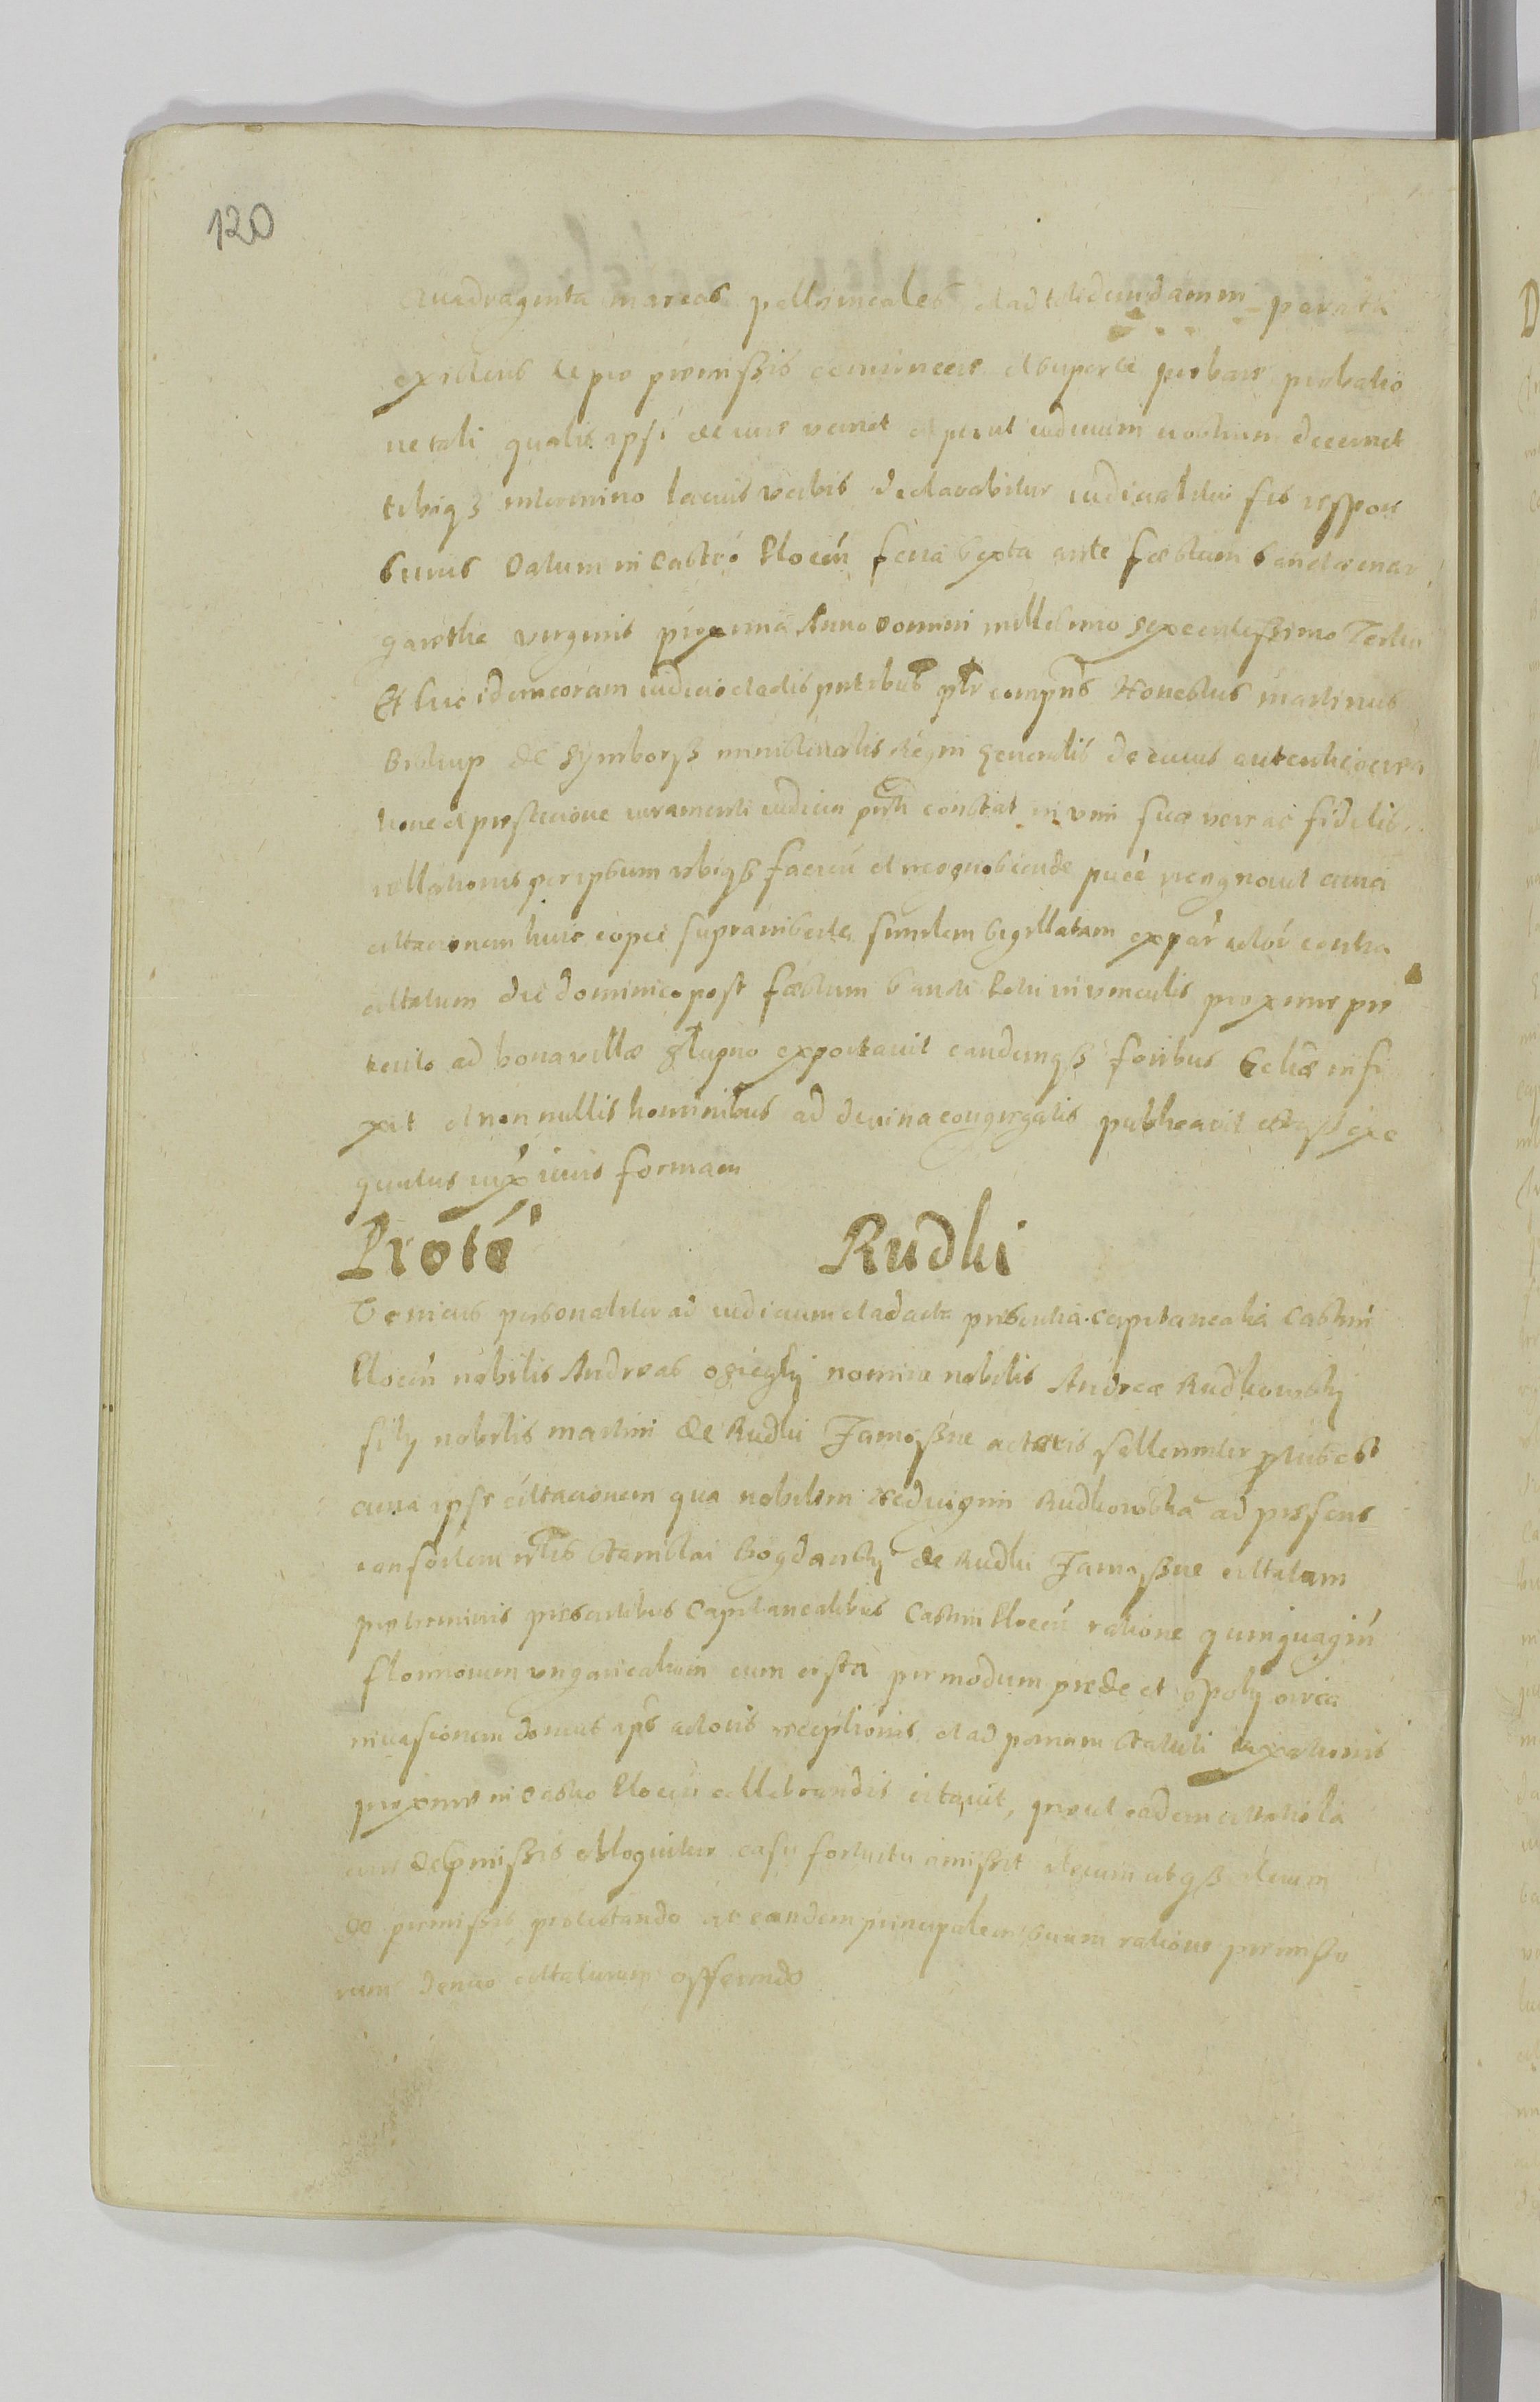 120
quadraginta marcas pollonicales et ad tal deundamm parata
existens de pre premissis convincere et super se probare probatio
ne tali qualis ipsi de iure venit et prout iudicium vestrum decernet
tibiqz in termino latius verbis declarabitur iudicialiter sis respon
surus Datum in Castro Plocen feria sexta ante festum sanctae mar
garethe virginis proxima Anno domini millesimo sexcentessimo Tertio
Et hic idem coram iudicio et actis pntibus pltr compns Honestus martinus
de Symborz ministerialis Regni generalis de cuius autentico crea
tione et prestatione iuramenti iudicio pnti constat in vim suae verae ac fidelis
rellationis per ipsum ubiqz facien et recognoscende palce recognovit quia
cittationem huic copei supra insertae similem sigillatam ex par actor contra
cittatum die dominico post festum sancti Petri in vinculis proxime pre
terito ad bona villae Slupno exportavit eandemqz foribus Ecliae infi
xit et non nullis hominibus ad divina congregatis publicavit estqz exe
quutus iux iuris formam
Protó Rudki
Veniens personaliter ad iudicium et ad acta presentia Capitanealia Castrin
Plocen nobilis Andreas ogieghy nomine nobilis Andreae Rudkowsky
filij nobilis martini de Rudki Jamoszne actoris sollenniter ptus est
quia ipse cittationem qua nobilem Hedvigim Rudkowska ad presens
consortem nlis Stanislai Bogdansky de Rudki Jamoszne cittatam
pro terminis presentibus Capitanealibus Castrin Plocen ratione quinquagin
florinorum vngaricalium cum cista per modum prede et spoly circa
invasionem domus ips actoris receptionis et ad penam statuti taxationis
proxime in Castro Plocen cellebrandis citavit, prout eadem cittatio la
cius de pmissis obloquitur casu fortuitu omissit iterum atqz iterum
de premissis protestando ac eandem principalem suum ratione premisso
rum denuo cittaturum offerendo